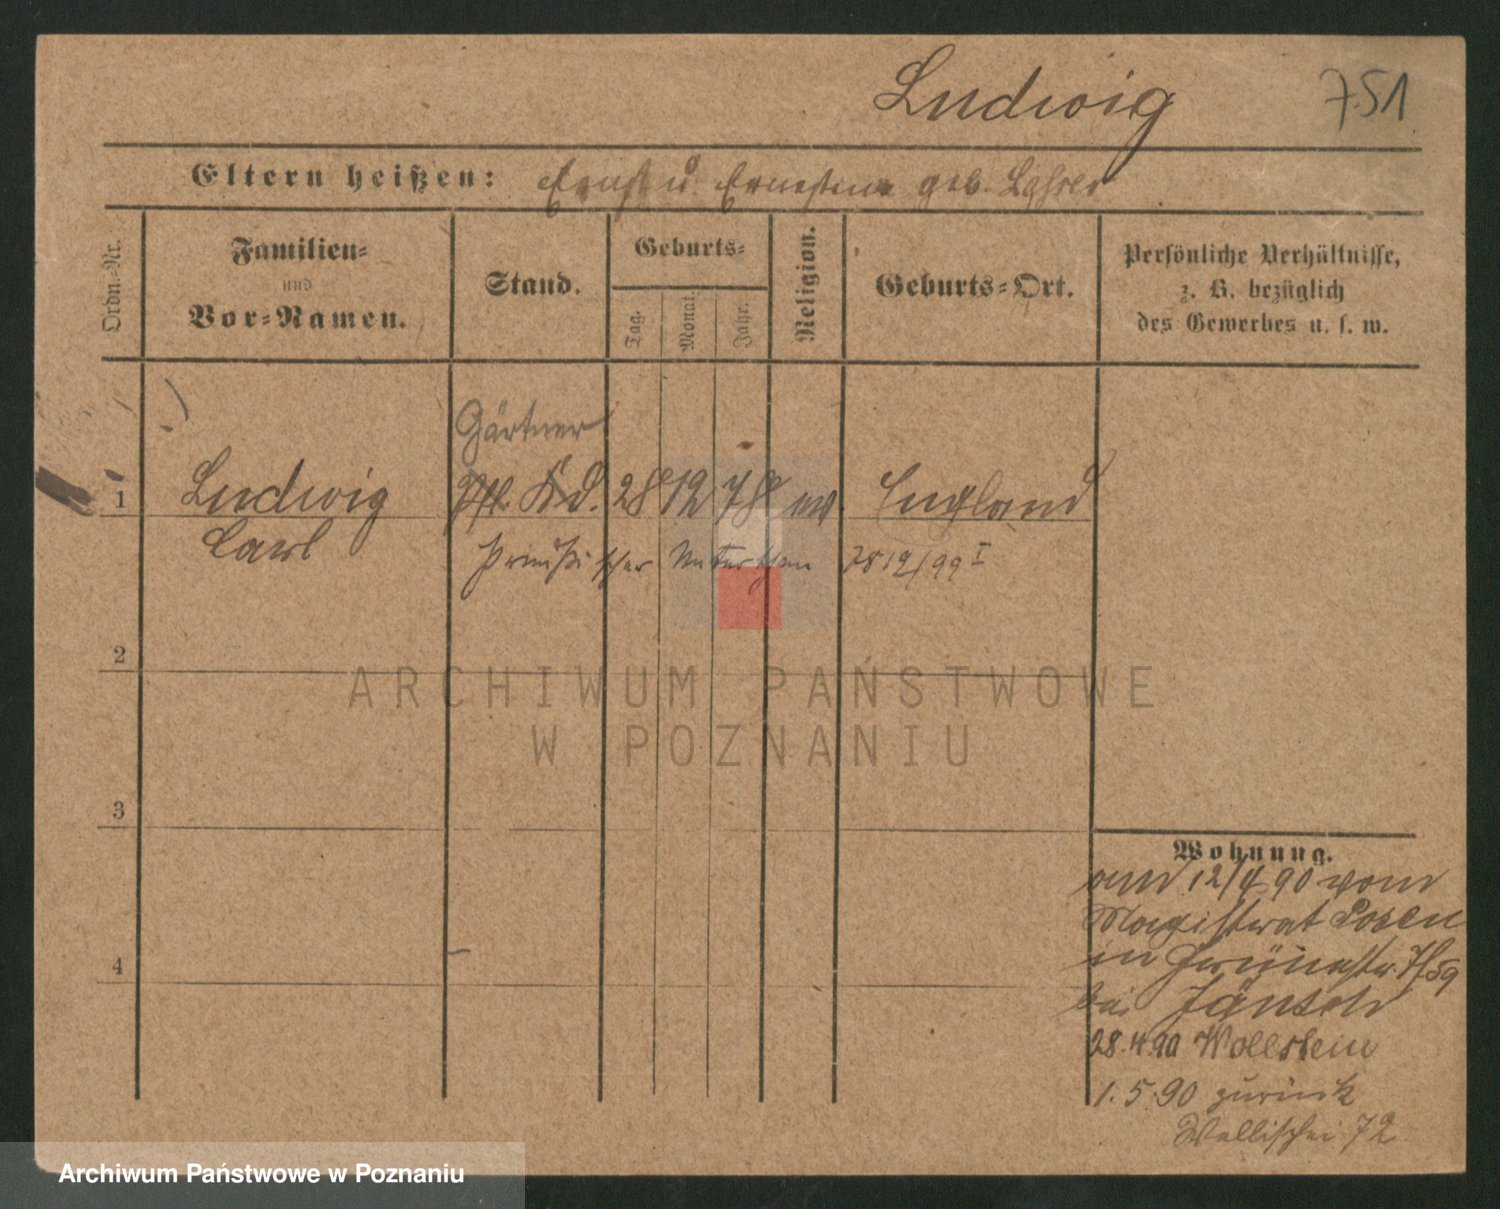 Ludwig
751
Eltern heißen: Ernst u. Ernestine geb.
Ordn.-Nr.
Familien-
und
Vor-Namen.
Stand.
Geburts-
Tag.
Monat.
Jahr.
Religion.
Geburts-Ort.
Persönliche Verhältnisse,
z. B. bezüglich
des Gewerbes u. s. w.
Gärtner
1 Ludwig 28 12 78 ev. England
Carl
Preußischer 2812/99 I
2
ARCHIWUM PAŃSTWOWE
W POZNANIU
3
Wohnung.
am 12/4 90 vom
Magistrat Posen
in Grünestr.
bei Jänsch
28.4.90 Wollstein
1.5.90 zurück
4
Wallischei 72
Archiwum Państwowe w Poznaniu